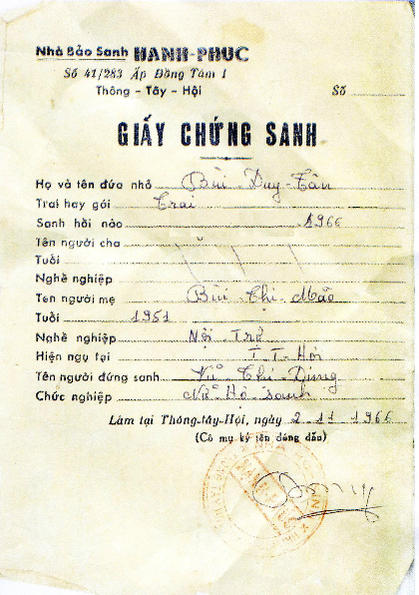 Nhà Bảo Sanh HẠNH-PHÚC
Số 41/283 Ấp Đồng Tâm 1
Thông - Tây - Hội Số
GIẤY CHỨNG SANH
Họ và tên đứa nhỏ Bùi Duy-Tân
Trai hay gói Trai
Sanh hồi nào 1966
Tên người cha
Tuổi
Nghề nghiệp
Tên người mẹ Bùi Thị Mão
Tuổi 1951
Nghề nghiệp Nội Trợ
Hiện ngụ tại T-T-Hội
Tên người đứng sanh Vũ Thị Dung
Chức nghiệp Nữ Hộ sanh
Làm tại Thông-tây-Hội, ngày 2-11-1966
(Cô mụ ký tên đóng dấu)